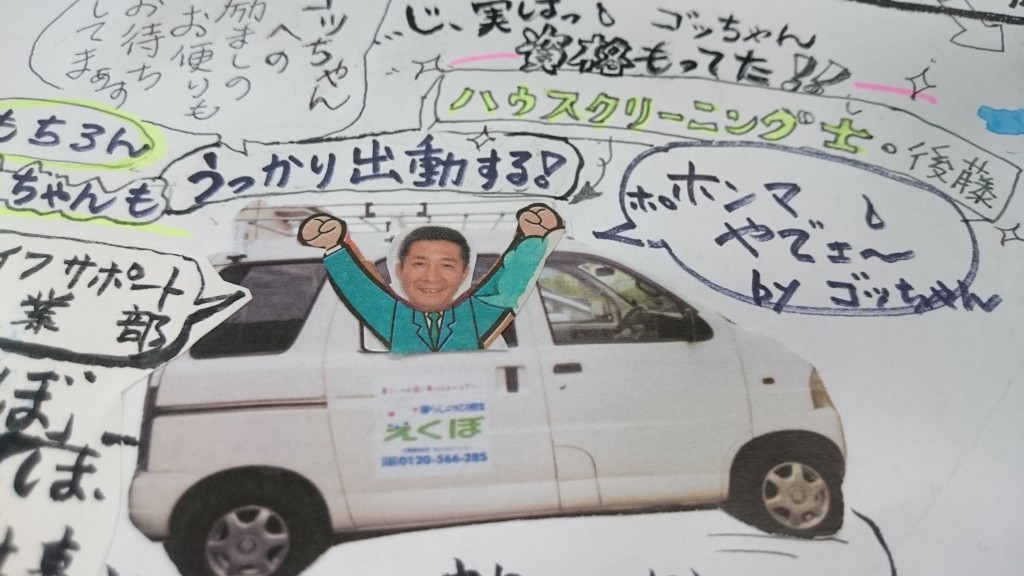 ゴッちゃん
への
励ましの
お便りも
お待ち
してまぁす
じ、実はっ
ゴッちゃん
資格もってた!!
ハウスクリーニング士。後藤
もちろん
ちゃんも
うっかり出動する!
ホンマ
やでェ〜
by ゴッちゃん
イフサポート
業部
えくぼ
0120-566-285
ぼ